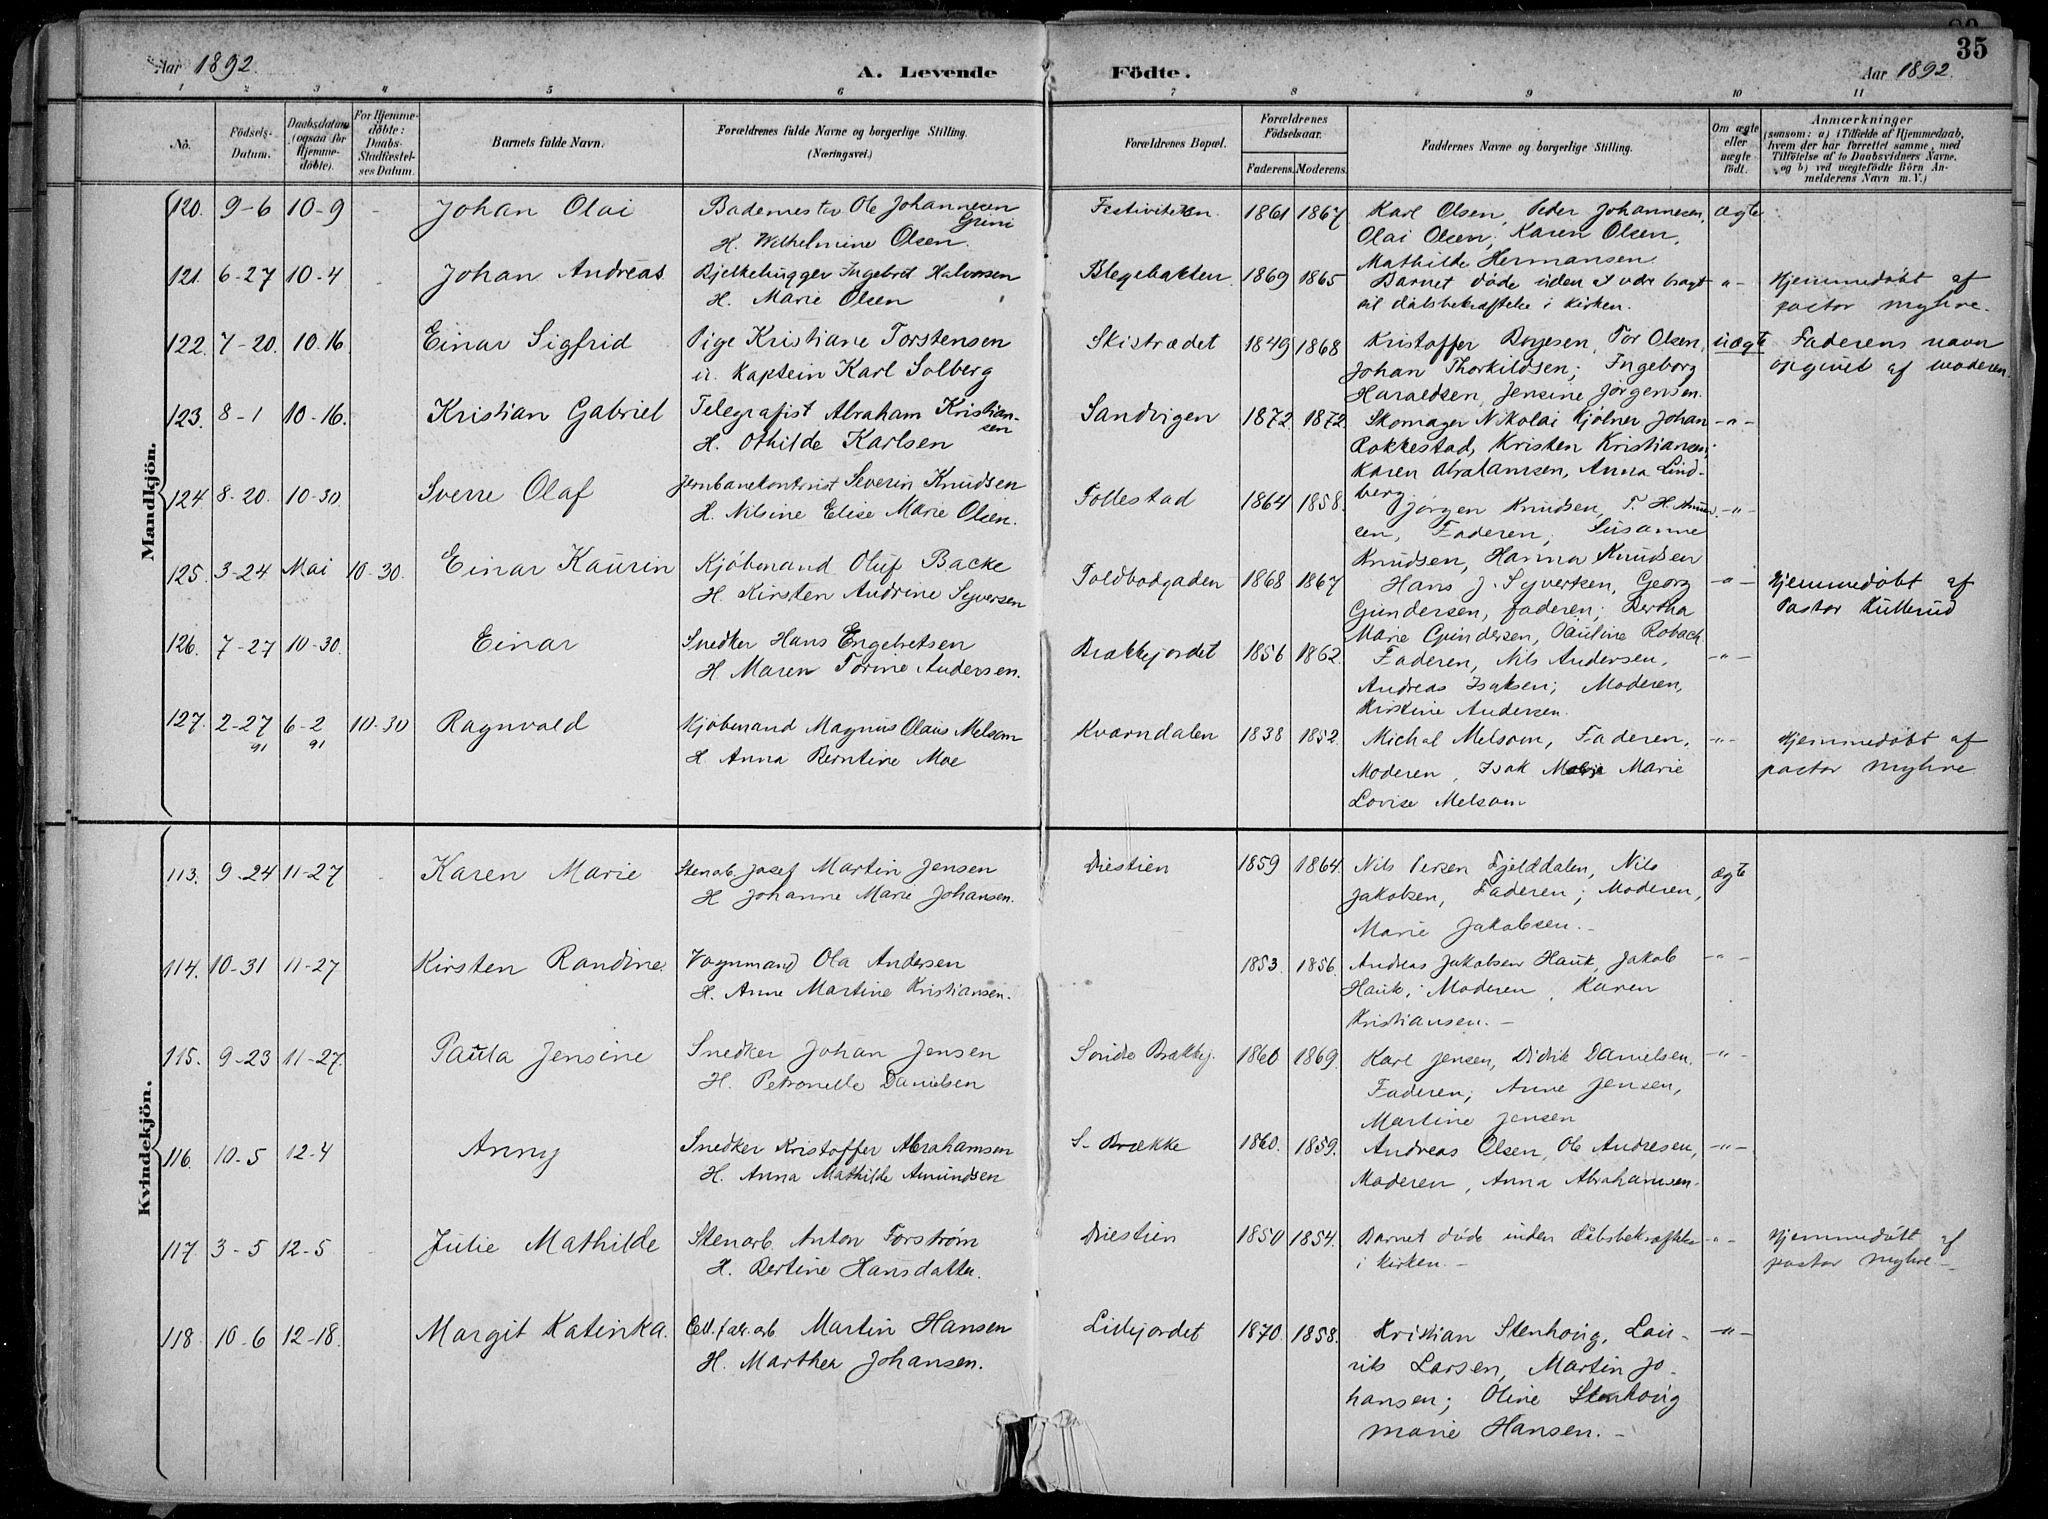 35
Aar 1892.
A. Levende Födte.
Aar 1892.
1 2 3 4 5 6 7 8 9 10 11
No.
Födsels-Datum.
Daabsdatum (ogsaa for Hjemmedöbte).
For Hjemmedöbte: Daabs-Stadfæstelses Datum.
Barnets fulde Navn.
Forældrenes fulde Navne og borgerlige Stilling.
(Næringsvei.)
Forældrenes Bopæl.
Forældrenes Födselsaar.
Faderens. Moderens.
Faddernes Navne og borgerlige Stilling.
Om ægte eller uægte födt.
Anmærkninger
(saasom: a) i Tilfælde af Hjemmedaab, hvem der har forrettet samme, med Tilföielse af to Daabsvidners Navne. og b) ved uægtefödte Börn Anmelderens Navn m. V.)
Mandkjön.
120. 9-6 10-9 - Johan Olai
Bademester Ole Johannesen Grini
H. Wilhelmine Olsen.
Festiviteten. 1861 1867
Karl Olsen, Peder Johannesen,
Olai Olsen; Karen Olsen,
Mathilde Hermansen.
ægte
121. 6-27 10-4 Johan Andreas
Bjelkehugger Ingebret Halvorsen
H. Marie Olsen
Blegebakken 1869 1865
Barnet døde uden at være bragt
til dåbsbekræftelse i kirken.
-"-
Hjemmedøbt af
pastor Myhre.
122. 7-20. 10.16. Einar Sigfrid
Pige Kristiane Torstensen
u. Kaptein Karl Solberg
Skistrædet 1849 1868
Kristoffer Borgesen, Tor Olsen,
Johan Thorkildsen; Ingeborg
Haraldsen, Jensine Jørgensen.
uægte
Faderens navn
opgivet af moderen.
123. 8-1 10-16. Kristian Gabriel
Telegrafist Abraham Kristiansen
H. Othilde Karlsen
Sandvigen 1872 1872
Skomager Nikolai Kjølner, Johan
Rokkestad, Kristen Kristiansen;
Karen Abrahamsen, Anna Lindberg
-"-
124. 8-20. 10-30. Sverre Olaf
Jernbanekontorist Severin Knudsen
H. Nilsine Elise Marie Olsen.
Tollestad 1864 1858.
Jørgen Knudsen, T. H. Knudsen,
Faderen; Susanne
Knudsen, Hanna Knudsen
-"-
125. 3-24 Mai 10-30. Einar Kaurin
Kjøbmand Oluf Backe
H. Kirsten Andrine Syversen
Toldbodgaden 1868 1867
Hans J. Syvertsen, Georg
Gundersen, faderen; Bertha
Marie Gundersen, Pauline Robach
-"-
Hjemmedøbt af
Pastor Kullerud
126. 7-27 10-30. Einar
Snedker Hans Engebretsen
H. Maren Torine Andersen.
Brækkejordet 1856 1862.
Faderen, Nils Andersen,
Andreas Isaksen; Moderen,
Kristine Andersen.
-"-
127. 2-27 91 6-2 91 10-30 Ragnvald
Kjøbmand Magnus Olaus Melsom
H. Anna Berntine Moe
Kvarndalen 1838 1852.
Michal Melsom, Faderen,
Moderen, Isak Marie
Lovise Melsom
-"-
Hjemmedøbt af
pastor Myhre
Kvindekjön.
113. 9-24 11-27 - Karen Marie
Stenarb. Josef Martin Jensen
H Johanne Marie Johansen.
Diestien 1859 1864.
Nils Persen Fjelddalen, Nils
Jakobsen, Faderen; Moderen,
Marie Jakobsen.-
ægte
114. 10-31 11-27 Kirsten Randine.
Vognmand Ola Andersen
H. Anne Martine Kristiansen.
1853. 1856.
Andreas Jakobsen Hauk, Jakob
Hauk; Moderen, Karen
Kristiansen.-
-"-
115. 9-23 11-27. Paula Jensine
Snedker Johan Jensen
H. Petronelle Danielsen
Søndre Brækkej. 1860 1869.
Karl Jensen, Didrik Danielsen.
Faderen; Anne Jensen,
Martine Jensen
-"-
116. 10-5 12-4 Anny
Snedker Kristoffer Abrahamsen
H. Anna Mathilde Amundsen
S- Brække 1860. 1859.
Andreas Olsen, Ole Andresen,
Moderen, Anna Abrahamsen.
-"-
117. 3-5 12-5 - Julie Mathilde
Stenarb. Anton Forstrøm
H. Bertine Hansdatter.
Diestien 1850 1854.
Barnet døde inden dåbsbekræftelse
i kirken.-
-"-
Hjemmedøbt af
pastor Myhre.-
118. 10-6 12-18. Margit Katinka.
Cell.fabr.arb Martin Hansen
H. Marthea Johansen.
Lillejordet 1870. 1858.
Kristian Stenhoug, Lau-
rits Larsen, Martin Jo-
hansen; Oline Stenhoug
Marie Hansen.-
-"-